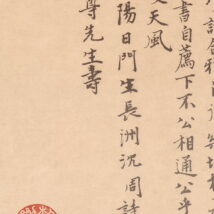 詩合雅
書自薦下不公相通公乎
天風
陽日門生長洲沈周詩
尊先生壽